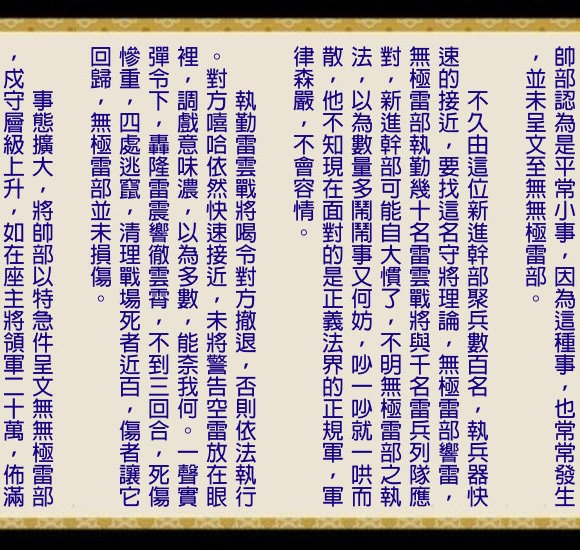 帥部認為是平常小事，因為這種事，也常常發生
，並未呈文至無無極雷部。
不久由這位新進幹部聚兵數百名，執兵器快
速的接近，要找這名守將理論，無極雷部響雷，
無極雷部執勤幾十名雷雲戰將與千名雷兵列隊應
對，新進幹部可能自大慣了，不明無極雷部之執
法，以為數量多鬧鬧事又何妨，吵一吵就一哄而
散，他不知現在面對的是正義法界的正規軍，軍
律森嚴，不會容情。
執勤雷雲戰將喝令對方撤退，否則依法執行
。對方嘻哈依然快速接近，未將警告空雷放在眼
裡，調戲意味濃，以為多數，能奈我何。一聲實
彈令下，轟隆雷震響徹雲霄，不到三回合，死傷
慘重，四處逃竄，清理戰場死者近百，傷者讓它
回歸，無極雷部並未損傷。
事態擴大，將帥部以特急件呈文無無極雷部
，戍守層級上升，如在座主將領軍二十萬，佈滿